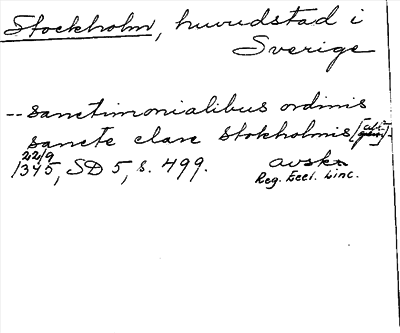 Stockholm, huvudstad i
Sverige
-- sanctimonialibus ordinis
sancte clare Stokholmis [abl.]
22/9
1345, SD 5, s. 499. avskr.
Reg. Eccl. Linc.